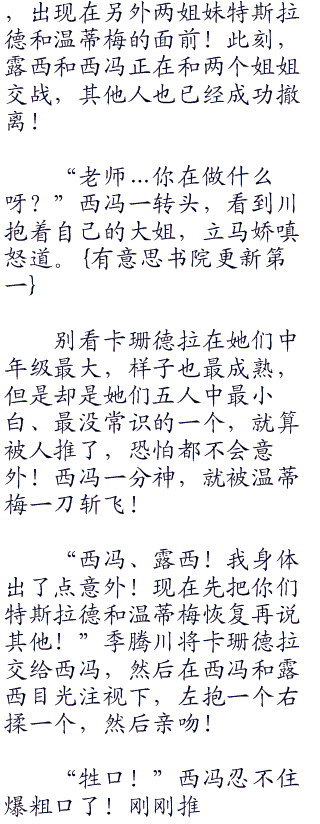 ，出现在另外两姐妹特斯拉
德和温蒂梅的面前！此刻，
露西和西冯正在和两个姐姐
交战，其他人也已经成功撤
离！
“老师…你在做什么
呀？”西冯一转头，看到川
抱着自己的大姐，立马娇嗔
怒道。{有意思书院更新第
一}
别看卡珊德拉在她们中
年级最大，样子也最成熟，
但是却是她们五人中最小
白、最没常识的一个，就算
被人推了，恐怕都不会意
外！西冯一分神，就被温蒂
梅一刀斩飞！
“西冯、露西！我身体
出了点意外！现在先把你们
特斯拉德和温蒂梅恢复再说
其他！”季腾川将卡珊德拉
交给西冯，然后在西冯和露
西目光注视下，左抱一个右
揉一个，然后亲吻！
“牲口！”西冯忍不住
爆粗口了！刚刚推